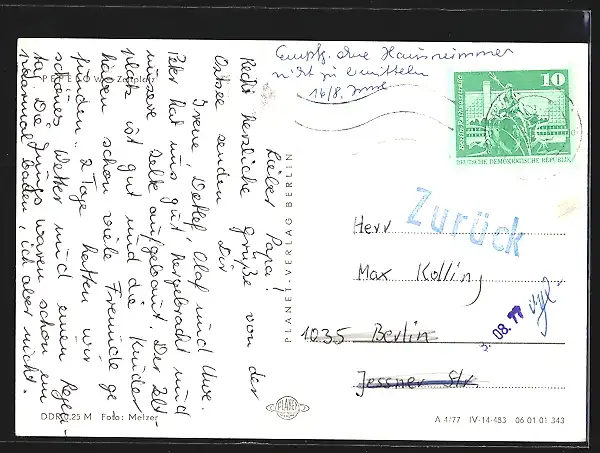 PEPELOW Zeltplatz
Lieber Papa!
Recht herzliche Grüße von der
Ostsee senden Dir
Irene, Detlef, Olaf und Uwe.
Peter hat uns gut hergebracht und
unsere Zelte aufgebaut. Der Zelt-
platz ist gut und die Kinder
haben schon viele Freunde ge-
funden. 2 Tage hatten wir
schönes Wetter und einen Regen-
tag. Die Jungs waren schon ein
paarmal baden, ich aber nicht.
DDR 0,25 M Foto: Melzer
PLANET-VERLAG BERLIN
PLANET
Empf. ohne Hausnummer
nicht zu ermitteln
16/8.
10
DEUTSCHE DEMOKRATISCHE REPUBLIK
Zurück
Herr
Max Kolling
1035 Berlin
Jessner Str.
3. 08. 77
A 4/77 IV-14-483 06 01 01 343